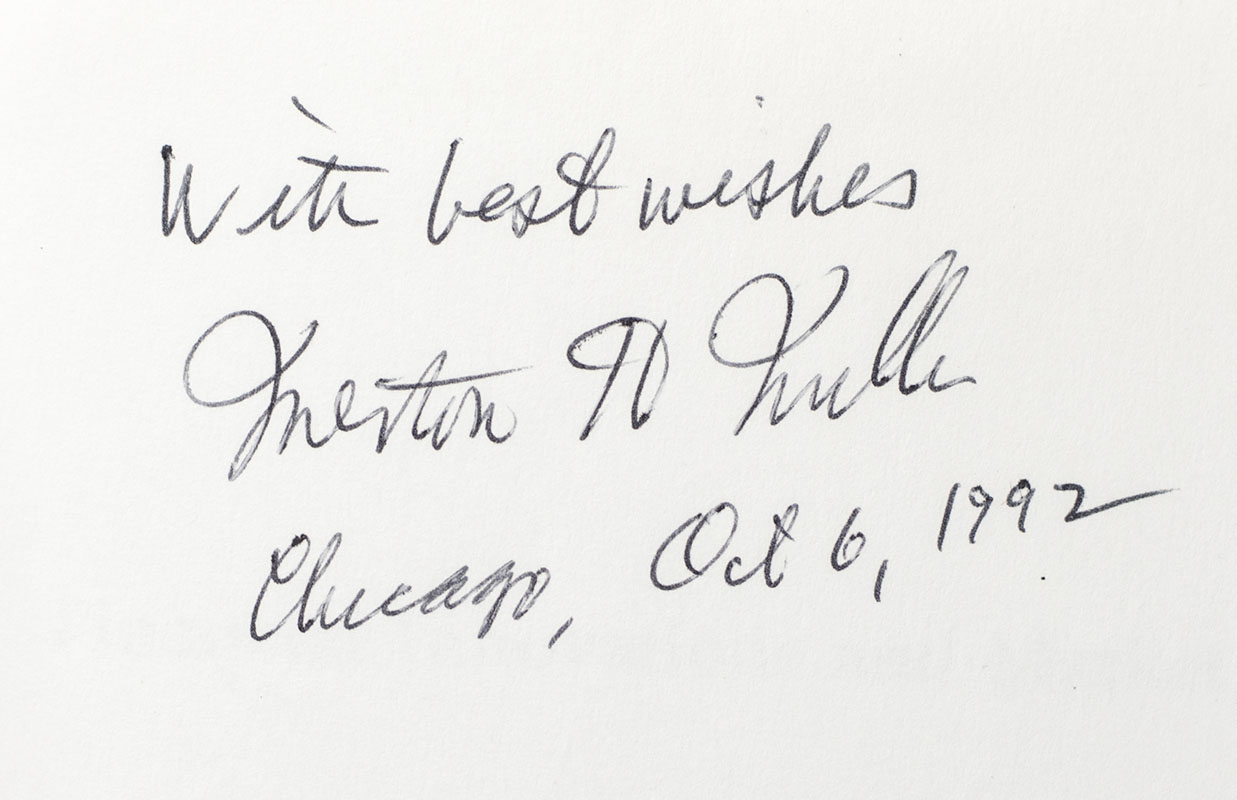 With best wishes
Merton H Miller
Chicago, Oct 6, 1992